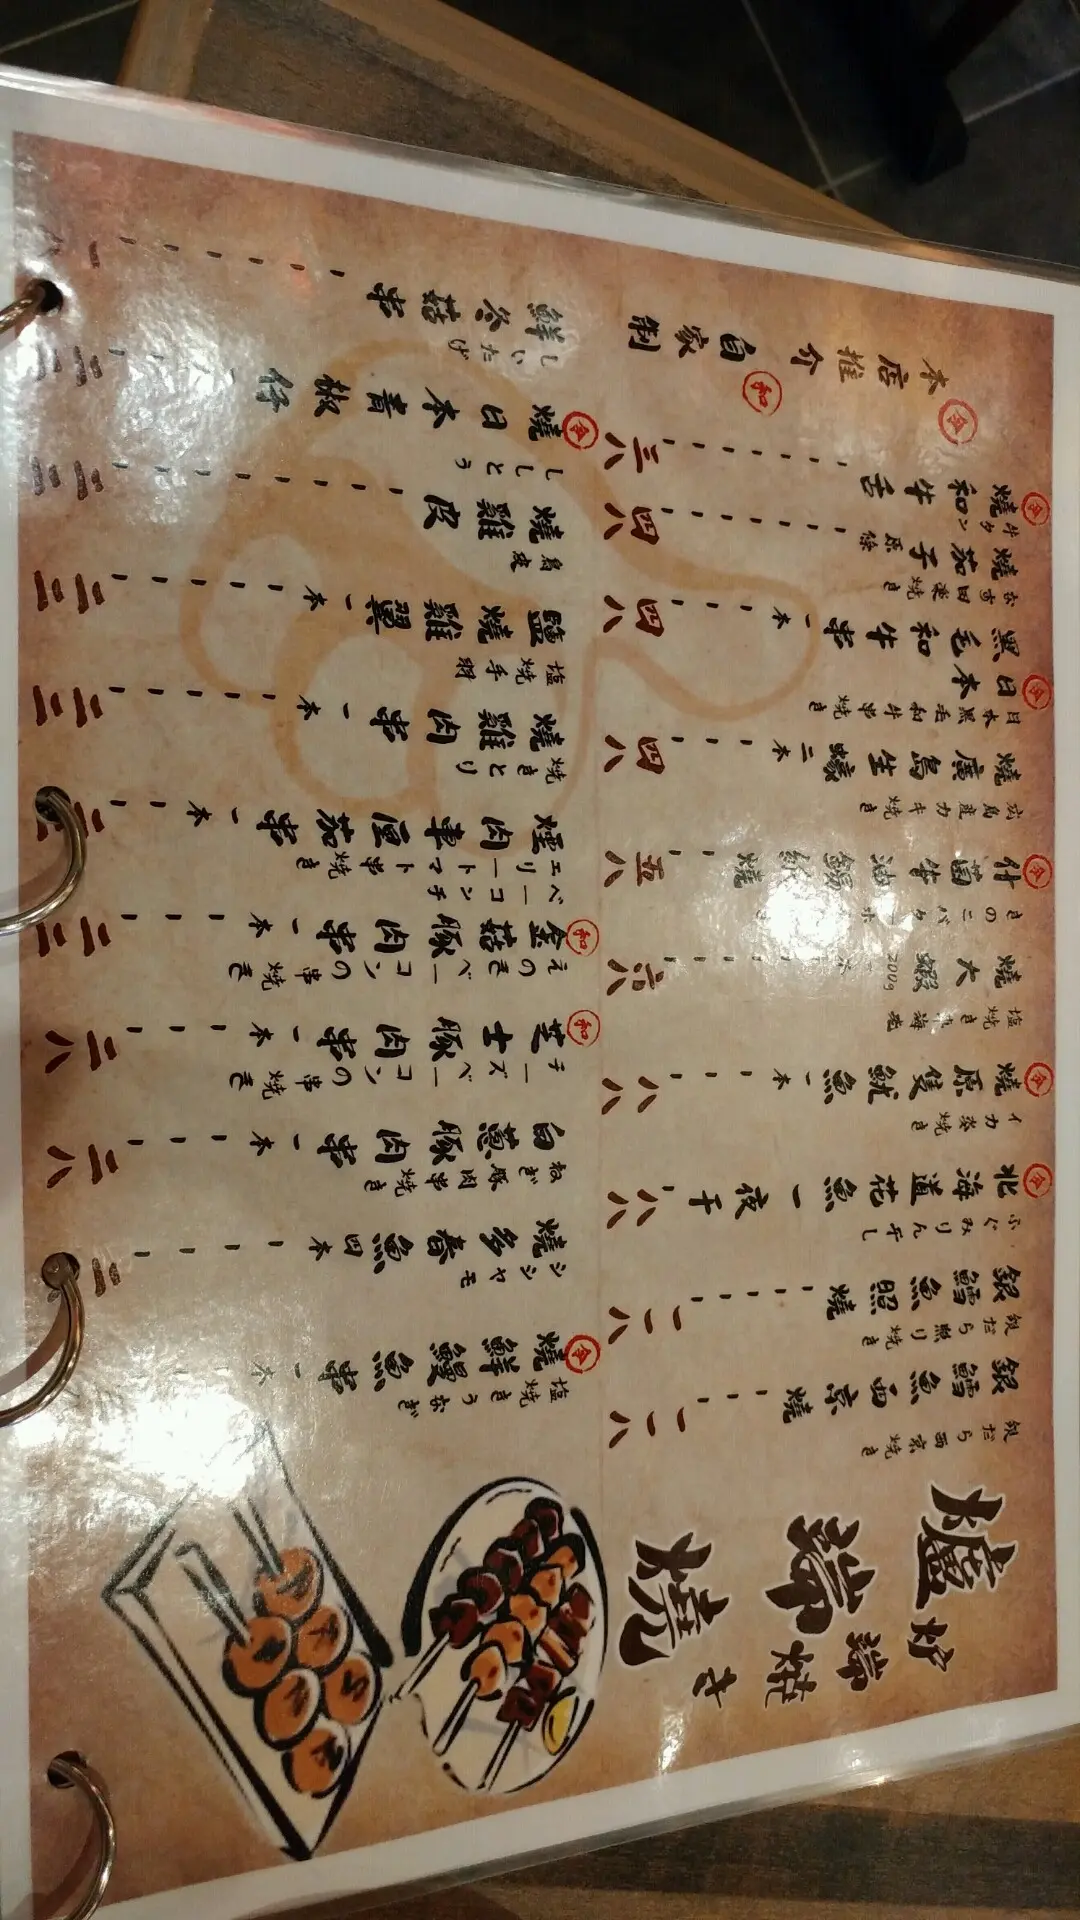 爐端燒
炉端焼き
銀鱈魚西京燒 一一八
銀だら西京焼き
銀鱈魚照燒 一一八
銀だら照り焼き
北海道花魚一夜干 八八
ふぐみりん干し
燒原隻魷魚 一本 八八
イカ姿焼き
燒大蝦 200g 六八
塩焼き 海老
什菌牛油錫紙燒 五八
きのこバターホ
燒廣島生蠔 二本 四八
広島産カキ焼き
日本黑毛和牛串 一本 四八
日本黒毛和牛串焼き
燒茄子 四八
なす田楽焼き
燒和牛舌 三八
牛タン
本店推介
自家制
燒鮮鰻魚串 一本
塩焼きうなぎ
燒多春魚 四本
シシャモ
白蔥豚肉串 一本 二八
ねぎ豚肉串焼き
芝士豚肉串 一本 二八
チーズベーコンの串焼き
金菇豚肉串 一本 二三
えのきベーコンの串焼き
煙肉車厘茄串 一本
ベーコンチェリートマト串焼き
燒雞肉串 一本 二三
焼きとり
鹽燒雞翼 一本 二三
塩焼手羽
燒雞皮 二三
鳥皮
燒日本青椒仔 二三
ししとう
鮮冬菇串
しいたけ